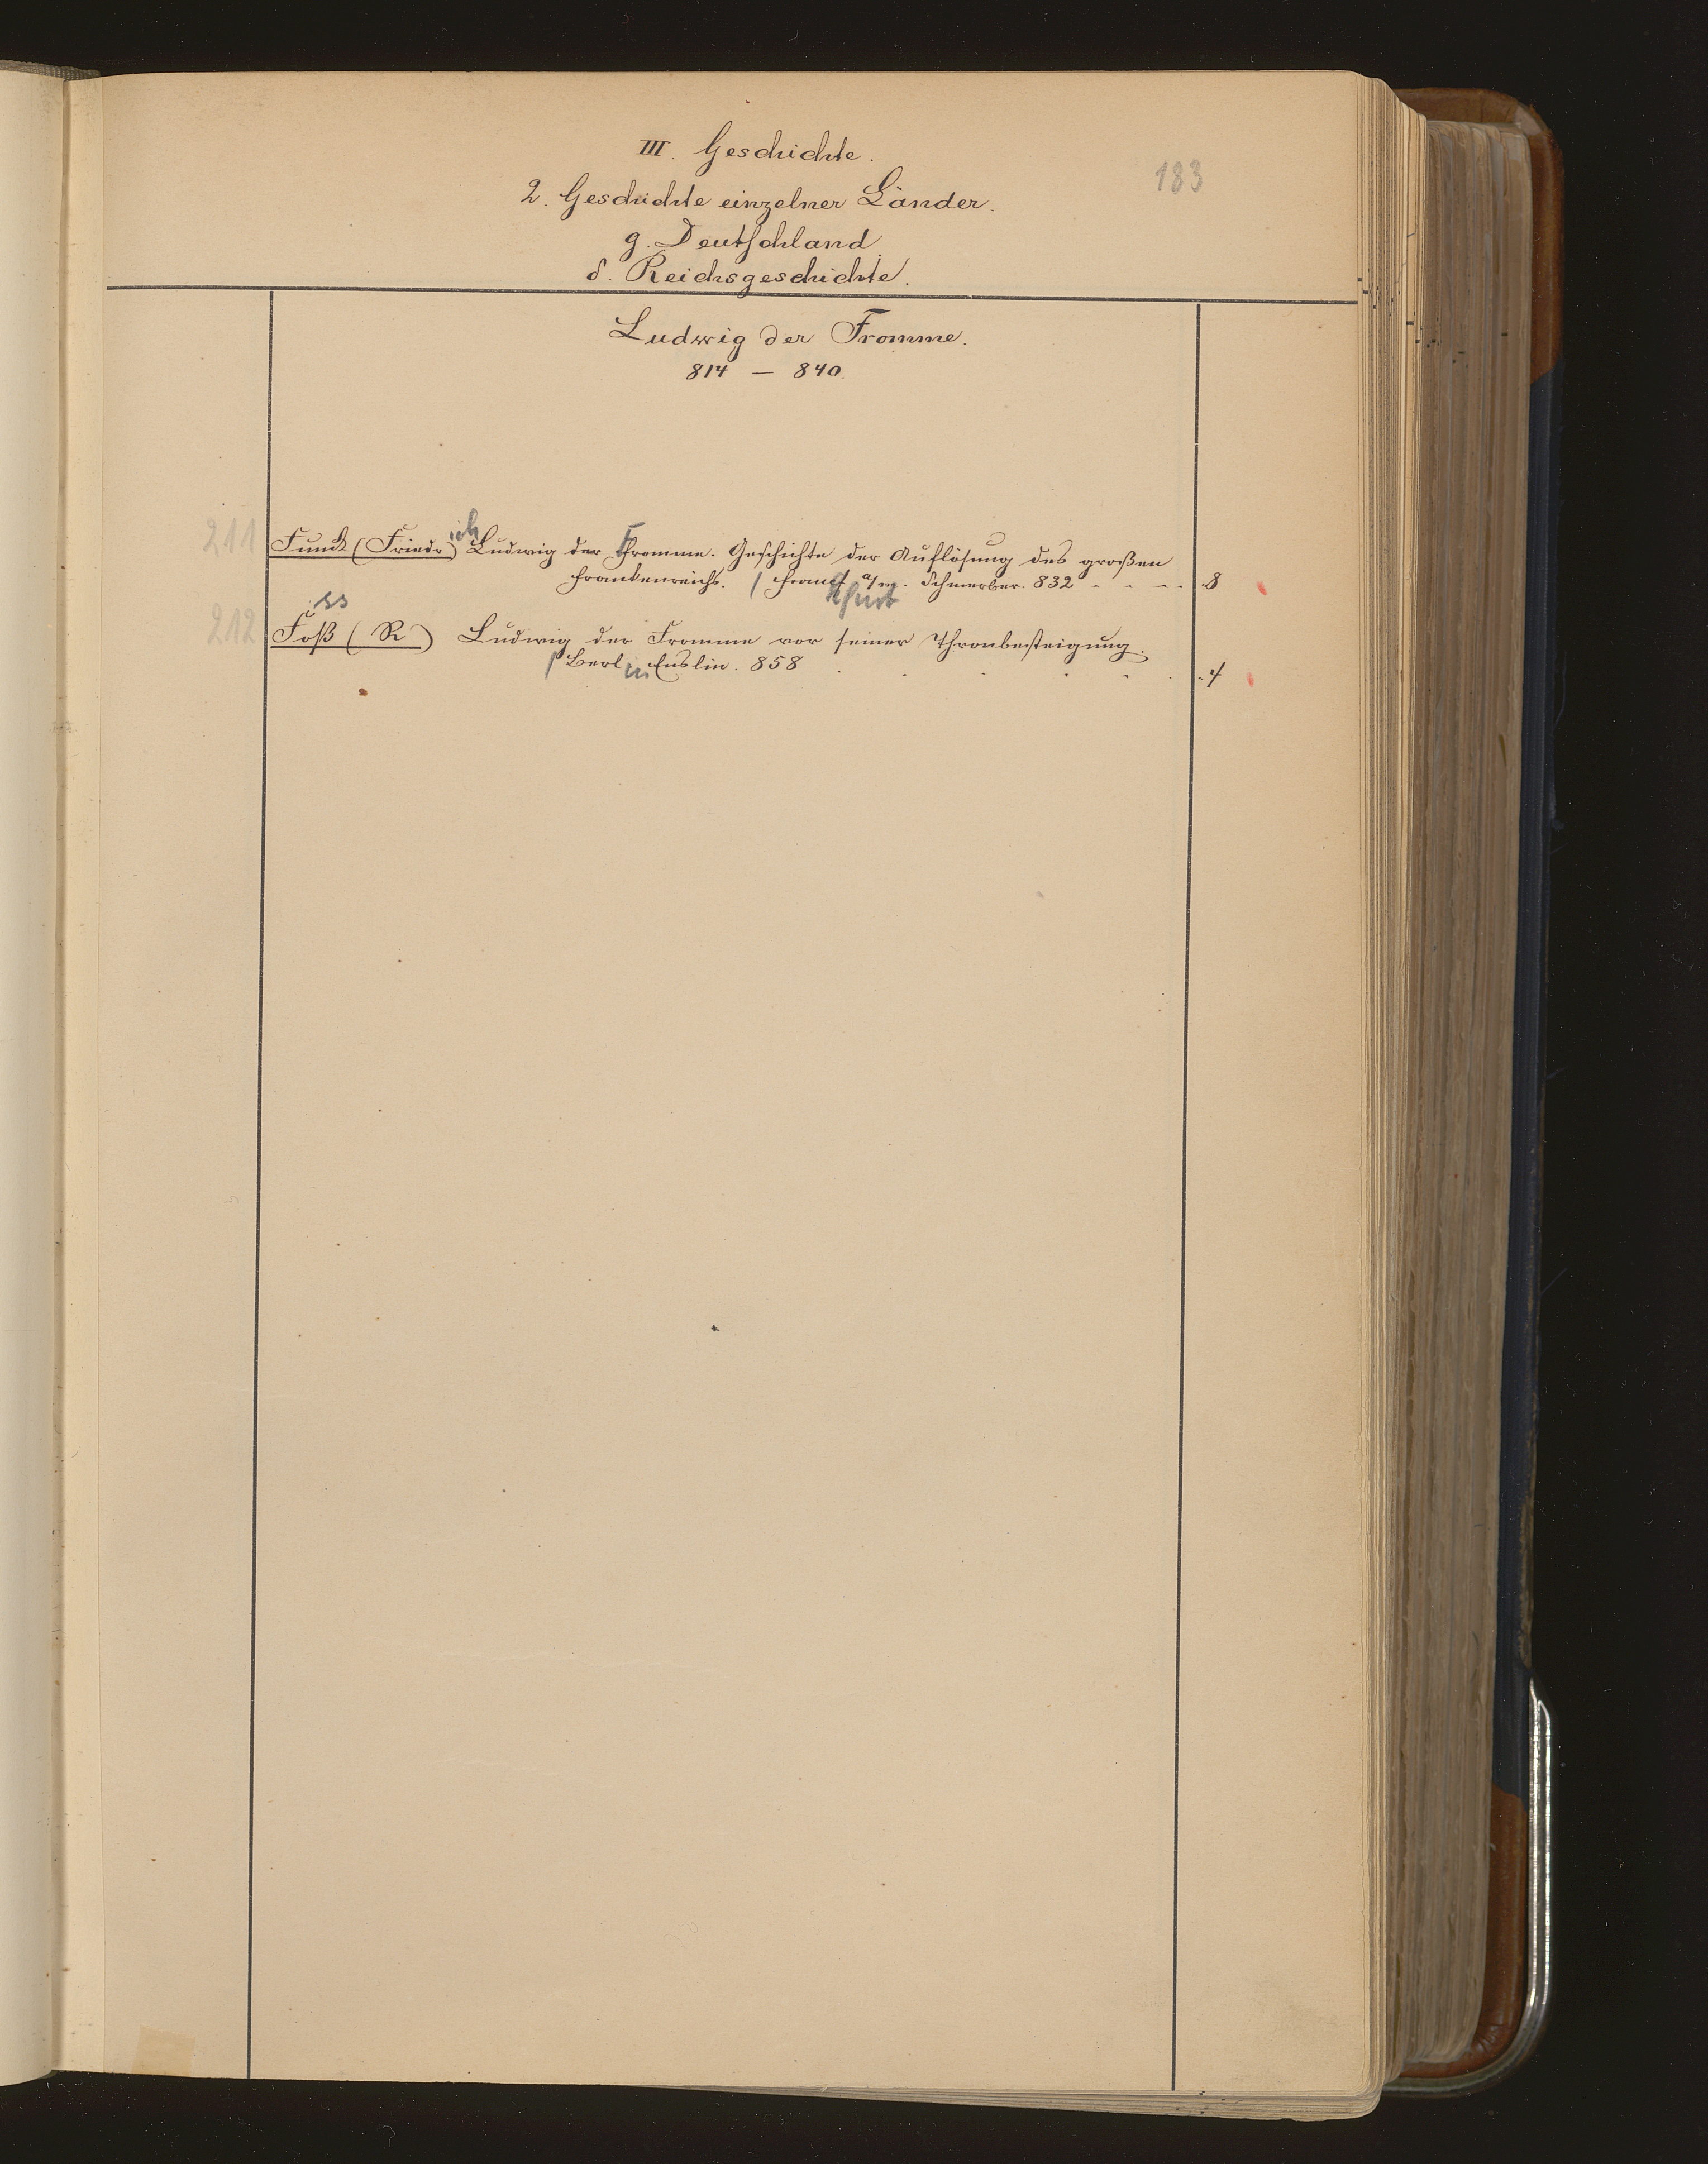 III. Geschichte.
183
2. Geschichte einzelner Länder.
g. Deutschland
δ. Reichsgeschichte.
Ludwig der Fromme.
814 — 840.
211 Funck (Friedrich) Ludwig der Fromme. Geschichte der Auflösung des großen
Frankenreichs. / Frankfurt a/m. Schmerber. 832 - - - - 8
ss
212 Foß (R) Ludwig der Fromme vor seiner Thronbesteigung.
/ Berlin Enslin. 858 . . . . . . 4